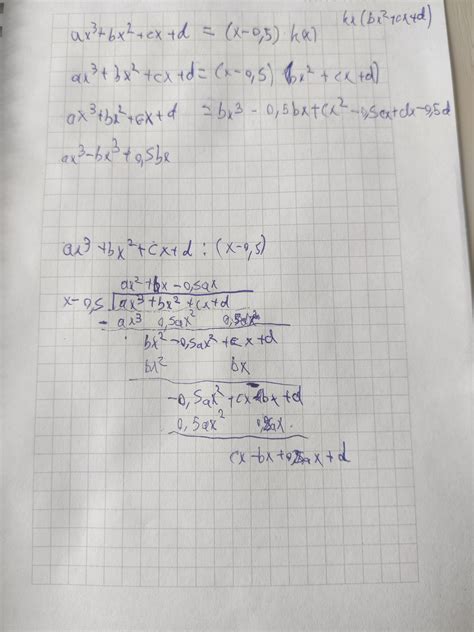 hx (bx²+cx+d)
ax³+bx²+cx+d = (x-0,5) h(x)
ax³+bx²+cx+d = (x-0,5) (bx²+cx+d)
ax³+bx²+cx+d = bx³-0,5bx+cx²-0,5cx+dx-0,5d
ax³-bx³+0,5bx
ax³+bx²+cx+d : (x-0,5)
ax²+bx-0,5ax
x-0,5 ax³+bx²+cx+d
- ax³ 0,5ax²
bx²-0,5ax²+cx+d
bx² bx
-0,5ax²+cx-bx+d
0,5ax²
cx-bx+0,5ax+d